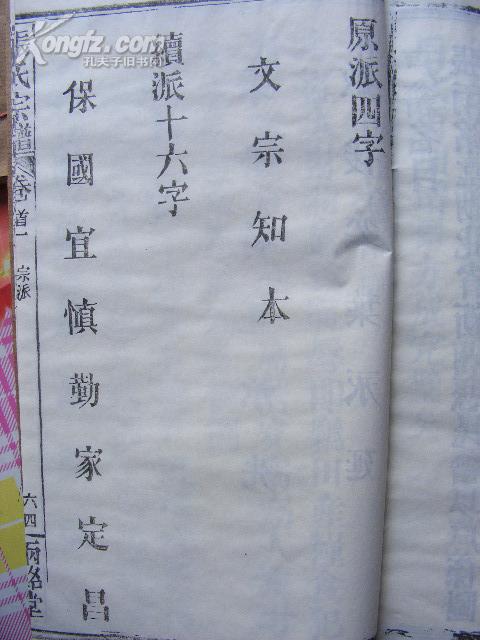 原派四字
文宗知本
續派十六字
保國宜慎勤家定昌
氏宗譜
卷首一
宗派
六四
堂
Kongfz.com
孔夫子旧书网